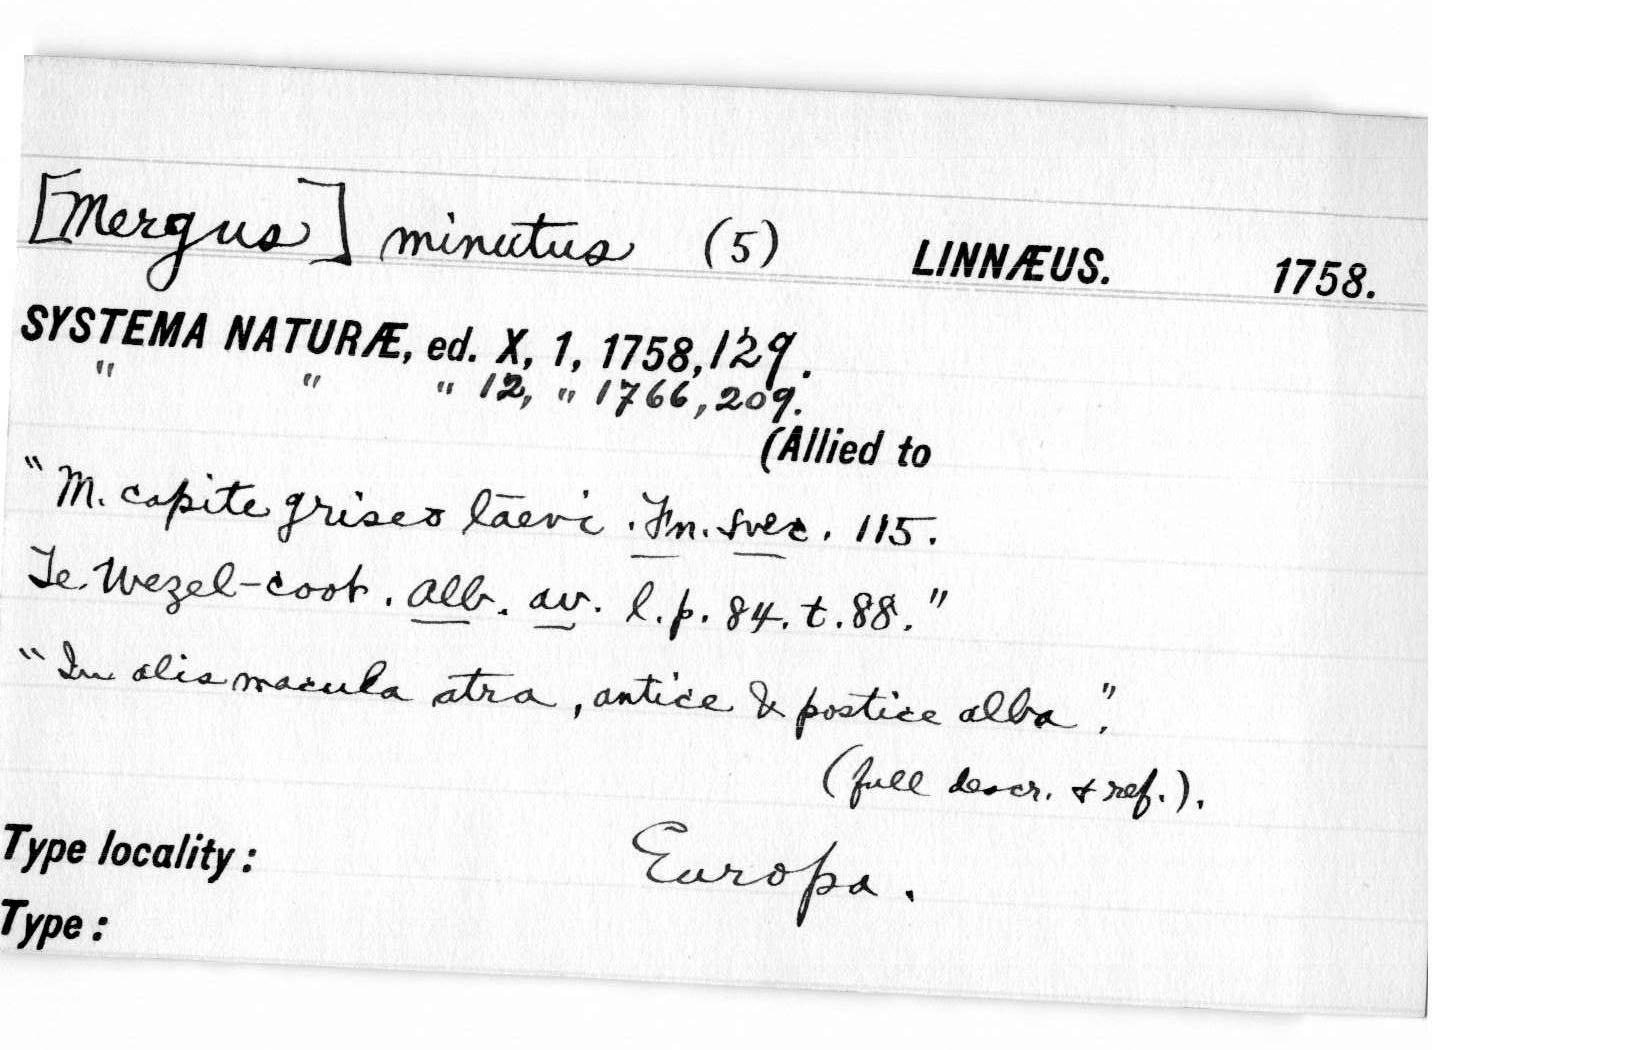 [Mergus] minutus (5) LINNÆUS. 1758.
SYSTEMA NATURÆ, ed. X, 1, 1758, 129.
" " " 12, " 1766, 209.
(Allied to
"M. capite griseo lævi. Fn. svec. 115.
Te. Wezel-coot. alb. av. l. p. 84. t. 88."
"In alis macula atra, antice & postice alba".
(full descr. & ref.).
Type locality: Europa.
Type: